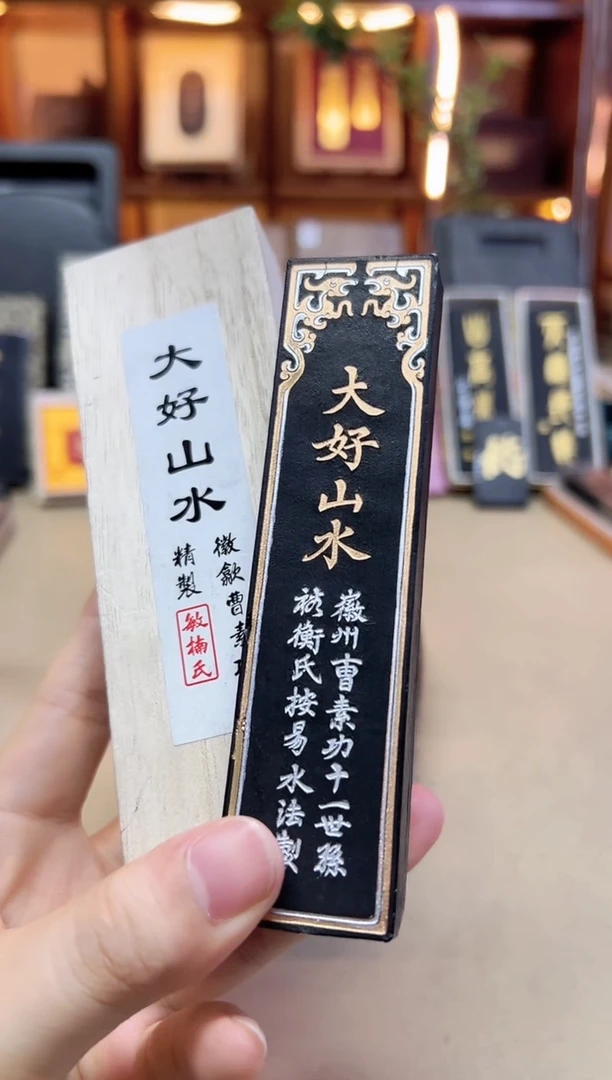 大好山水
徽歙曹素功
精製
敏楠氏
大好山水
徽州曹素功十一世孫
衡氏按易水法製